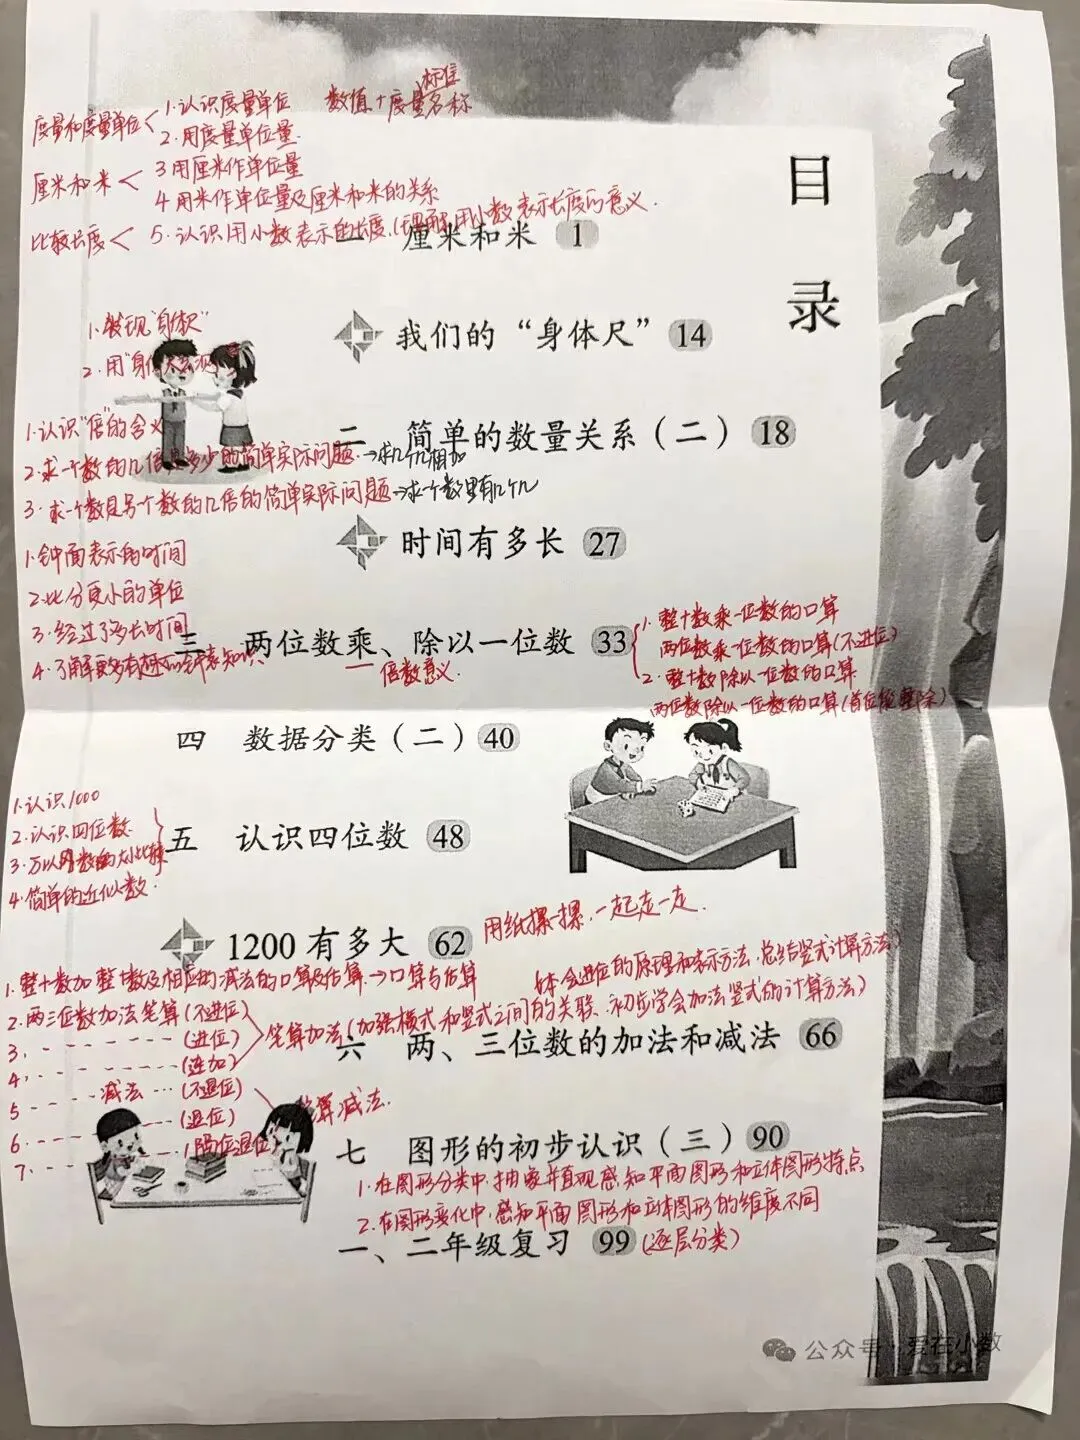 目录
度量和度量单位
1.认识度量单位 数值+度量名称
标准
2.用度量单位量
厘米和米
3用厘米作单位量
4用米作单位量及厘米和米的关系
比较长度
5.认识用小数表示的长度(理解用小数表示长度的意义.
一 厘米和米 1
1.发现"身体尺"
我们的“身体尺” 14
2.用"身体
1.认识"倍"的含义
二 简单的数量关系(二) 18
2.求一个数的几倍是多少的简单实际问题.→求几个几相加
3.求一个数是另一个数的几倍的简单实际问题→求一个数里有几个几
时间有多长 27
1.钟面表示的时间
2.比分更小的单位
3.经过了多长时间
三 两位数乘、除以一位数 33
倍数意义.
4.了解更多有趣的钟表知识.
1.整十数乘一位数的口算
两位数乘一位数的口算(不进位)
2.整十数除以一位数的口算
两位数除以一位数的口算(首位能整除)
四 数据分类(二) 40
1.认识1000
2.认识四位数
五 认识四位数 48
3.万以内数的大小比较
4.简单的近似数.
1200有多大 62
用纸摞一摞,一起走一走.
1.整十数加整十数及相应的减法的口算及估算.→口算与估算
(体会进位的原理和表示方法,总结竖式计算方法)
2.两三位数加法笔算(不进位)
3. - - - - - - - (进位)
4. - - - - - - - (连加)
笔算加法(加强横式和竖式之间的关联、初步学会加法竖式的计算方法)
六 两、三位数的加法和减法 66
5 - - - - 减法 ··· (不退位)
6. - - - - - - (退位)
7. - - - - - (隔位退位)
笔算减法.
七 图形的初步认识(三) 90
1.在图形分类中,抽象并直观感知平面图形和立体图形特点
2.在图形变化中,感知平面图形和立体图形的维度不同
一、二年级复习 99 (逐层分类)
公众号·爱在小数